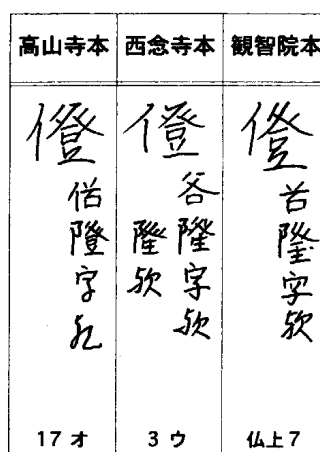 高山寺本 西念寺本 観智院本
僜
隥字
僜
谷隆字欤
隆欤
僜
字欤
17オ 3ウ 仏上7